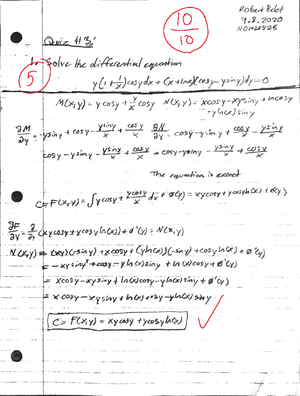 Robert Pelot
9.8.2020
10
10
Quiz #3
5
1. Solve the differential equation
y(1+1/x)cosydx+(x+lnx)(cosy-ysiny)dy=0
M(x,y)=ycosy+y/x cosy N(x,y)=xcosy-xysiny+lncosy
-yln(x)siny
∂M/∂y=-ysiny+cosy-ysiny/x+cosy/x ∂N/∂x=cosy-ysiny+cosy/x-ysiny/x
cosy-ysiny-ysiny/x+cosy/x=cosy-ysiny-ysiny/x+cosy/x
The equation is exact
C=F(x,y)=∫ycosy+ycosy/x dx+Ø(y)=xycosy+ycosyln(x)+Ø(y)
∂F/∂y=∂/∂y(xycosy+ycosyln(x))+Ø'(y)=N(x,y)
N(x,y)=(xy)(-siny)+xcosy+(yln(x))(-siny)+cosyln(x)+Ø'(y)
=-xysiny+xcosy-yln(x)siny+ln(x)cosy+Ø'(y)
=xcosy-xysiny+ln(x)cosy-yln(x)siny+Ø'(y)
=xcosy-xysiny+ln(x)cosy-yln(x)siny
C=F(x,y)=xycosy+ycosyln(x)